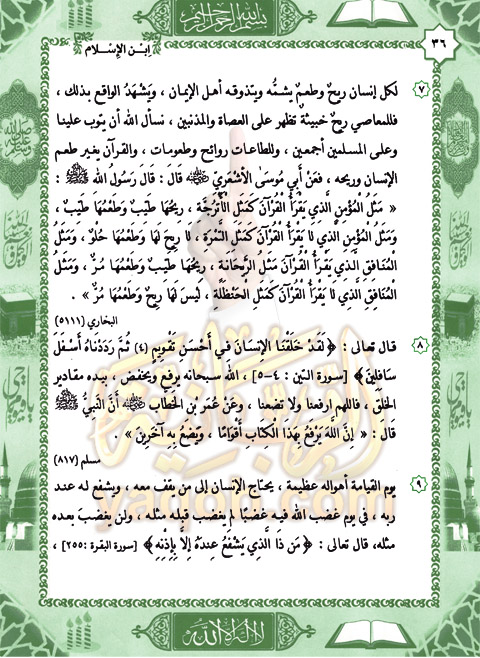 بسم الله الرحمن الرحيم
٣٦
ابن الإسلام
٧ لكل إنسان ريحٌ وطعمٌ يشمُّه ويتذوقه أهل الإيمان ، ويَشْهَدُ الواقع بذلك ،
فللمعاصي ريحٌ خبيثة تظهر على العصاة والمذنبين ، نسأل الله أن يتوب علينا
وعلى المسلمين أجمعين ، وللطاعات روائح وطعومات ، والقرآن يغير طعم
الإنسان وريحه ، فعَنْ أَبِي مُوسَى الأَشْعَرِيِّ ﵁ قَالَ : قَالَ رَسُولُ الله ﷺ :
« مَثَلُ الْمُؤْمِنِ الَّذِي يَقْرَأُ الْقُرْآنَ كَمَثَلِ الأُتْرُجَّةِ ، رِيحُهَا طَيِّبٌ وَطَعْمُهَا طَيِّبٌ ،
وَمَثَلُ الْمُؤْمِنِ الَّذِي لاَ يَقْرَأُ الْقُرْآنَ كَمَثَلِ التَّمْرَةِ ، لاَ رِيحَ لَهَا وَطَعْمُهَا حُلْوٌ ، وَمَثَلُ
الْمُنَافِقِ الَّذِي يَقْرَأُ الْقُرْآنَ مَثَلُ الرَّيْحَانَةِ ، رِيحُهَا طَيِّبٌ وَطَعْمُهَا مُرٌّ ، وَمَثَلُ
الْمُنَافِقِ الَّذِي لاَ يَقْرَأُ الْقُرْآنَ كَمَثَلِ الْحَنْظَلَةِ ، لَيْسَ لَهَا رِيحٌ وَطَعْمُهَا مُرٌّ » .
البخاري (٥١١١)
٨ قال تعالى : ﴿ لَقَدْ خَلَقْنَا الإِنسَانَ فِي أَحْسَنِ تَقْوِيمٍ (٤) ثُمَّ رَدَدْنَاهُ أَسْفَلَ
سَافِلِينَ ﴾ [ سورة التين : ٤-٥ ] ، الله سبحانه يرفع ويخفض ، بيده مقادير
الخلق ، فاللهم ارفعنا ولا تضعنا ، وعَنْ عُمَر بْنِ الْخَطَّابِ ﵁ أَنَّ النَّبِيَّ ﷺ
قَالَ : « إِنَّ اللهَ يَرْفَعُ بِهَذَا الْكِتَابِ أَقْوَامًا ، وَيَضَعُ بِهِ آخَرِينَ » .
مسلم (٨١٧)
٩ يوم القيامة أهواله عظيمة ، يحتاج الإنسان إلى من يقف معه ، ويشفع له عند
ربه ، في يوم غضب الله فيه غضبًا لم يغضب قبله مثله ، ولن يغضب بعده
مثله، قال تعالى : ﴿ مَن ذَا الَّذِي يَشْفَعُ عِنْدَهُ إِلا بِإِذْنِهِ ﴾ [ سورة البقرة :٢٥٥ ] ،
لا إله إلا الله